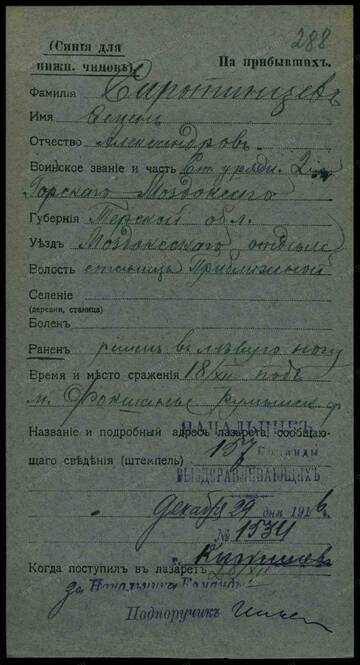 288
(Синія для
нижн. чиновъ).
На прибывшахъ.
Фамилія Сиротинцевъ
Имя Семенъ
Отчество Александровъ
Воинское званіе и часть Ст. урядн. 2
Горскаго Моздокскаго
Губернія Терской обл.
Уѣздъ Моздокскаго отдѣла
Волость станица Приближной
Селеніе
(деревня, станица)
Боленъ
Раненъ раненъ въ лѣвую ногу
Время и мѣсто сраженія 18/XII подъ
м.
Названіе и подробный адресъ лазарета, сообщаю-
щаго свѣдѣнія (штемпель)
НАЧАЛЬНИКЪ
157 Команды
ВЫЗДОРАВЛИВАЮЩИХЪ
Декабря 29 дня 1916
№ 1534
г. Кишинев
Когда поступилъ въ лазаретъ
за Начальника Команды
Подпоручикъ